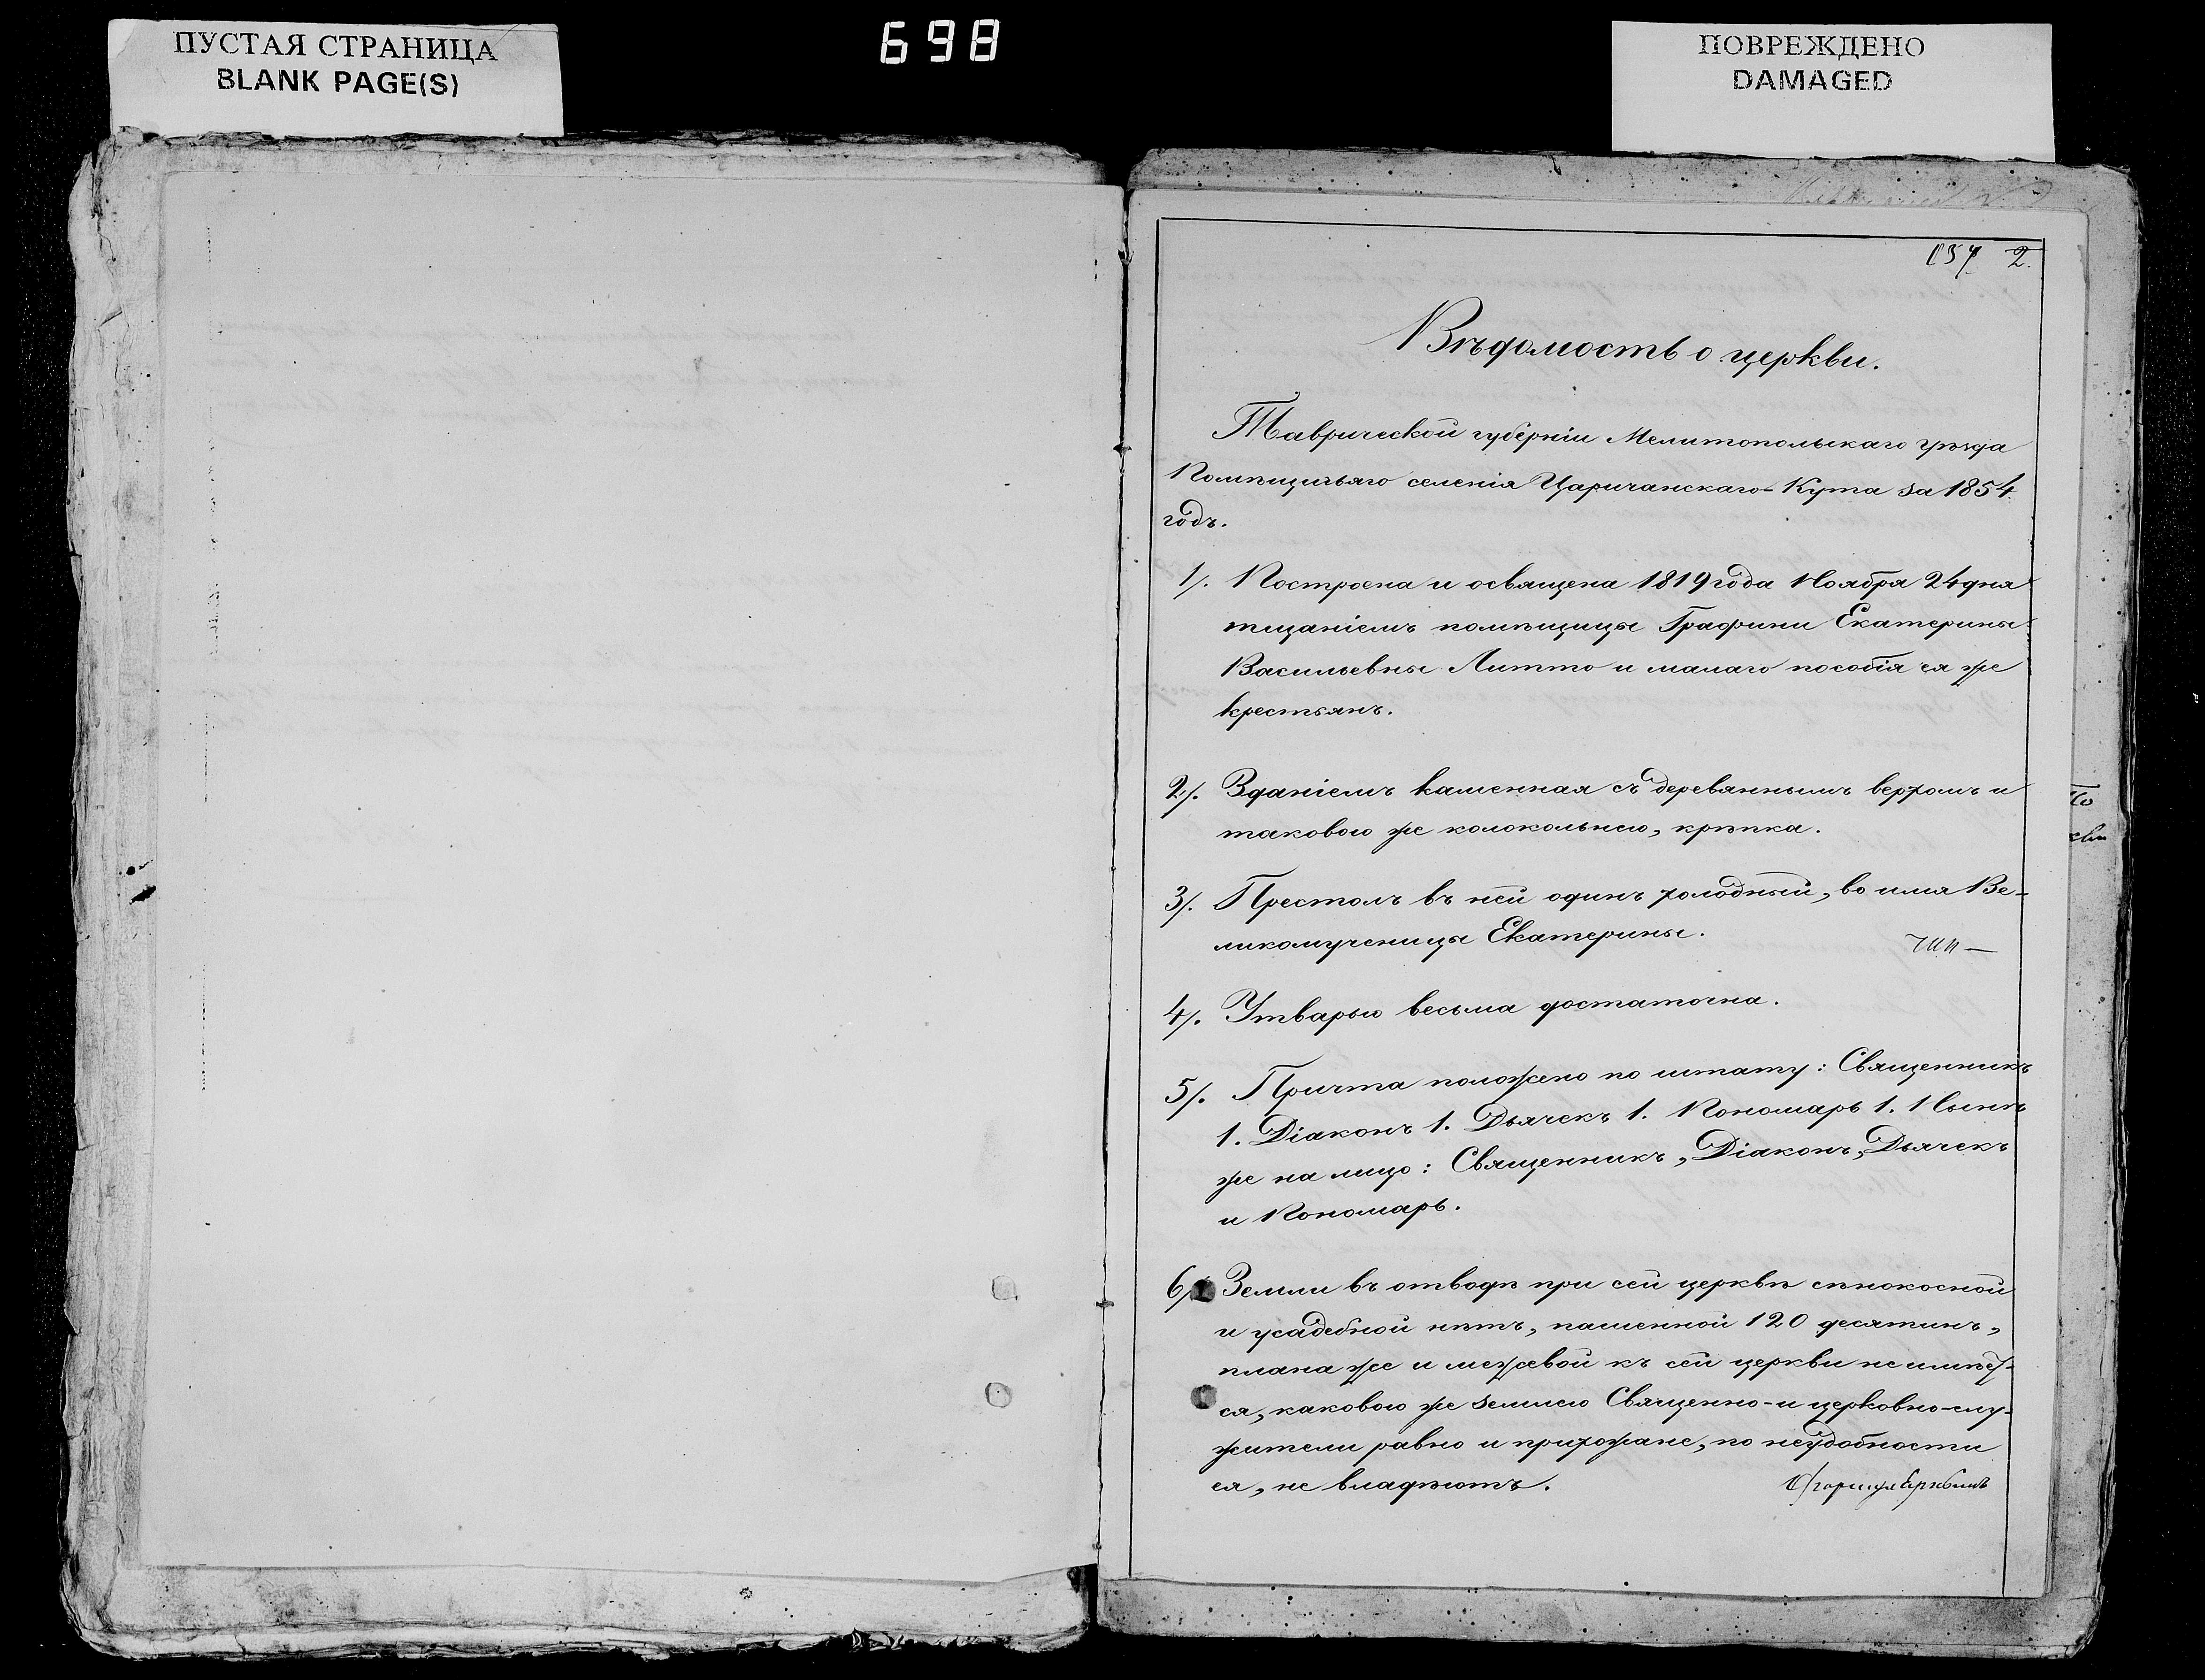 ПУСТАЯ СТРАНИЦА
BLANK PAGE(S)
698
ПОВРЕЖДЕНО
DAMAGED
2.
Вѣдомость о церкви.
Таврической губерніи Мелитопольскаго уѣзда
Помѣщичьяго селенія Царичанскаго-Кута за 1854
годъ.
1/. Построена и освящена 1819 года Ноября 24 дня
тщаніемъ помѣщицы Графини Екатерины
Васильевны Литто и малаго пособія ея же
крестьянъ.
2/. Зданіемъ каменная съ деревяннымъ верхомъ и
таковою же колокольнею, крѣпка.
3/. Престолъ въ ней одинъ холодный, во имя Ве-
ликомученицы Екатерины.
4/. Утварью весьма достаточна.
5/. Причта положено по штату: Священникъ
1. Діаконъ 1. Дьячекъ 1. Пономарь 1. Нынѣ
же на лицо: Священникъ, Діаконъ, Дьячекъ
и Пономарь.
6/. Земли въ отводѣ при сей церквѣ сѣнокосной
и усадебной нѣтъ, пашенной 120 десятинъ,
плана же и межевой къ сей церкви не имѣет-
ся, каковою же землею Священно-и церковно-слу-
жители равно и прихожане, по неудобности
ея, не владѣютъ.